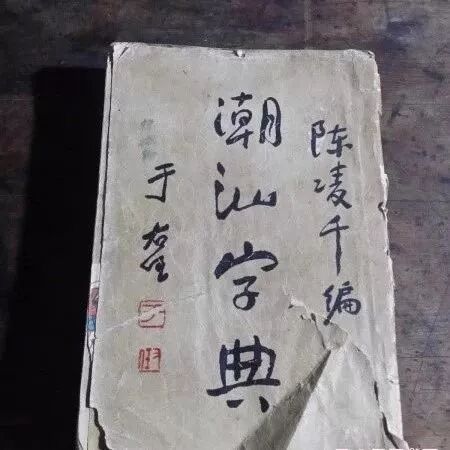 陈凌千编
潮汕字典
于